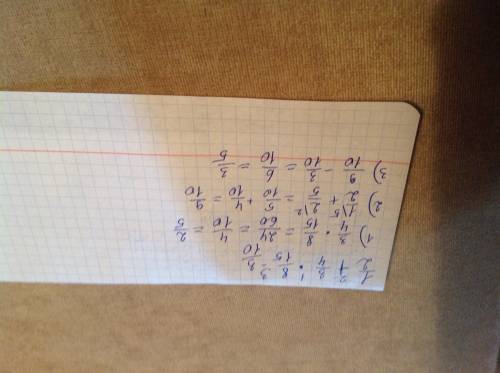 1/2 + 3/4 · 8/15 - 3/10
1) 3/4 · 8/15 = 24/60 = 4/10 = 2/5
2) 1/2\5 + 2/5\2 = 5/10 + 4/10 = 9/10
3) 9/10 - 3/10 = 6/10 = 3/5